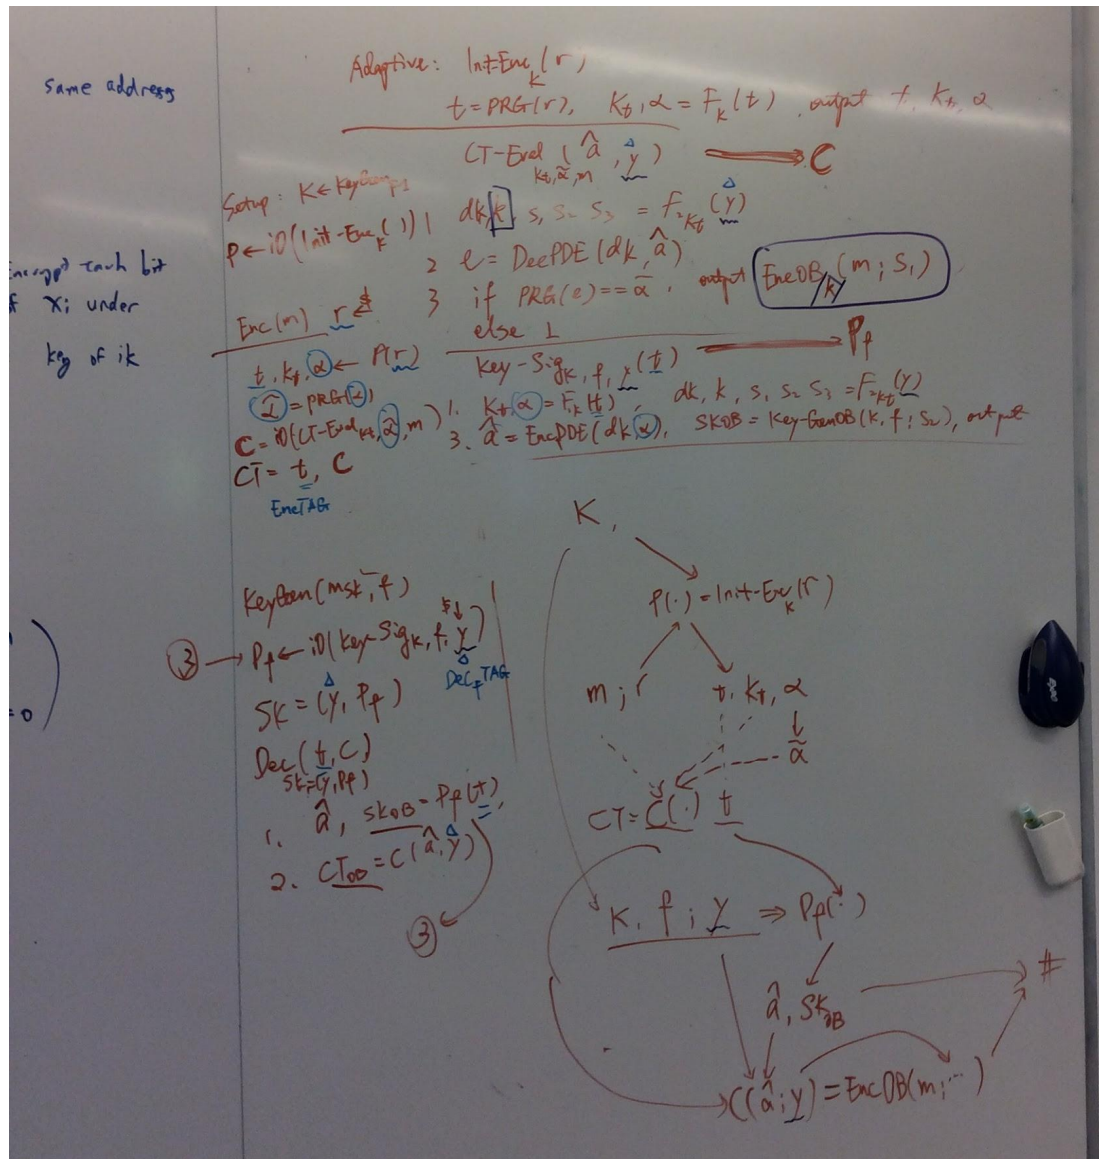 same address
Encrypt each bit
of xi under
key of ik
= 0
Adaptive: Init-Enc_K(r)
t = PRG(r), K_t, α = F_K(t), output t, K_t, α
CT-Eval_{K_t, α̃, m}(â, y) → C
Setup: K ←
P ← iO(Init-Enc_K( ))
1 dk, k, s1 s2 s3 = F_{2Kt}(y)
2 e = DecPDE(dk, â)
3 if PRG(e) == α̃, output EncOB_k(m; s1)
else ⊥
→ P_f
Enc(m) r ← $
t, K_t, α ← P(r)
α̃ = PRG(α)
C = iO(CT-Eval_{K_t, α̃, m})
CT = t, C
EncTAG
Key-Sig_{K, f, y}(t)
1. K_t, α = F_K(t), dk, k, s1 s2 s3 = F_{2Kt}(y)
3. â = EncPDE(dk, α), SKOB = Key-GenOB(k, f; s2), output
KeyGen(msk, f)
③ → P_f ← iO(Key-Sig_{K, f, y})
$ ↓
Dec_f TAG
SK = (y, P_f)
Dec_{SK=(y, P_f)}(t, C)
1. â, SKOB = P_f(t),
2. CT_OB = C(â, y)
③
K,
P(·) = Init-Enc_K(r)
m; r
t, K_t, α
α̃
CT = C(·) t
K, f; y ⇒ P_f(·)
â, SK_OB
#
C(â; y) = EncOB(m; ...)